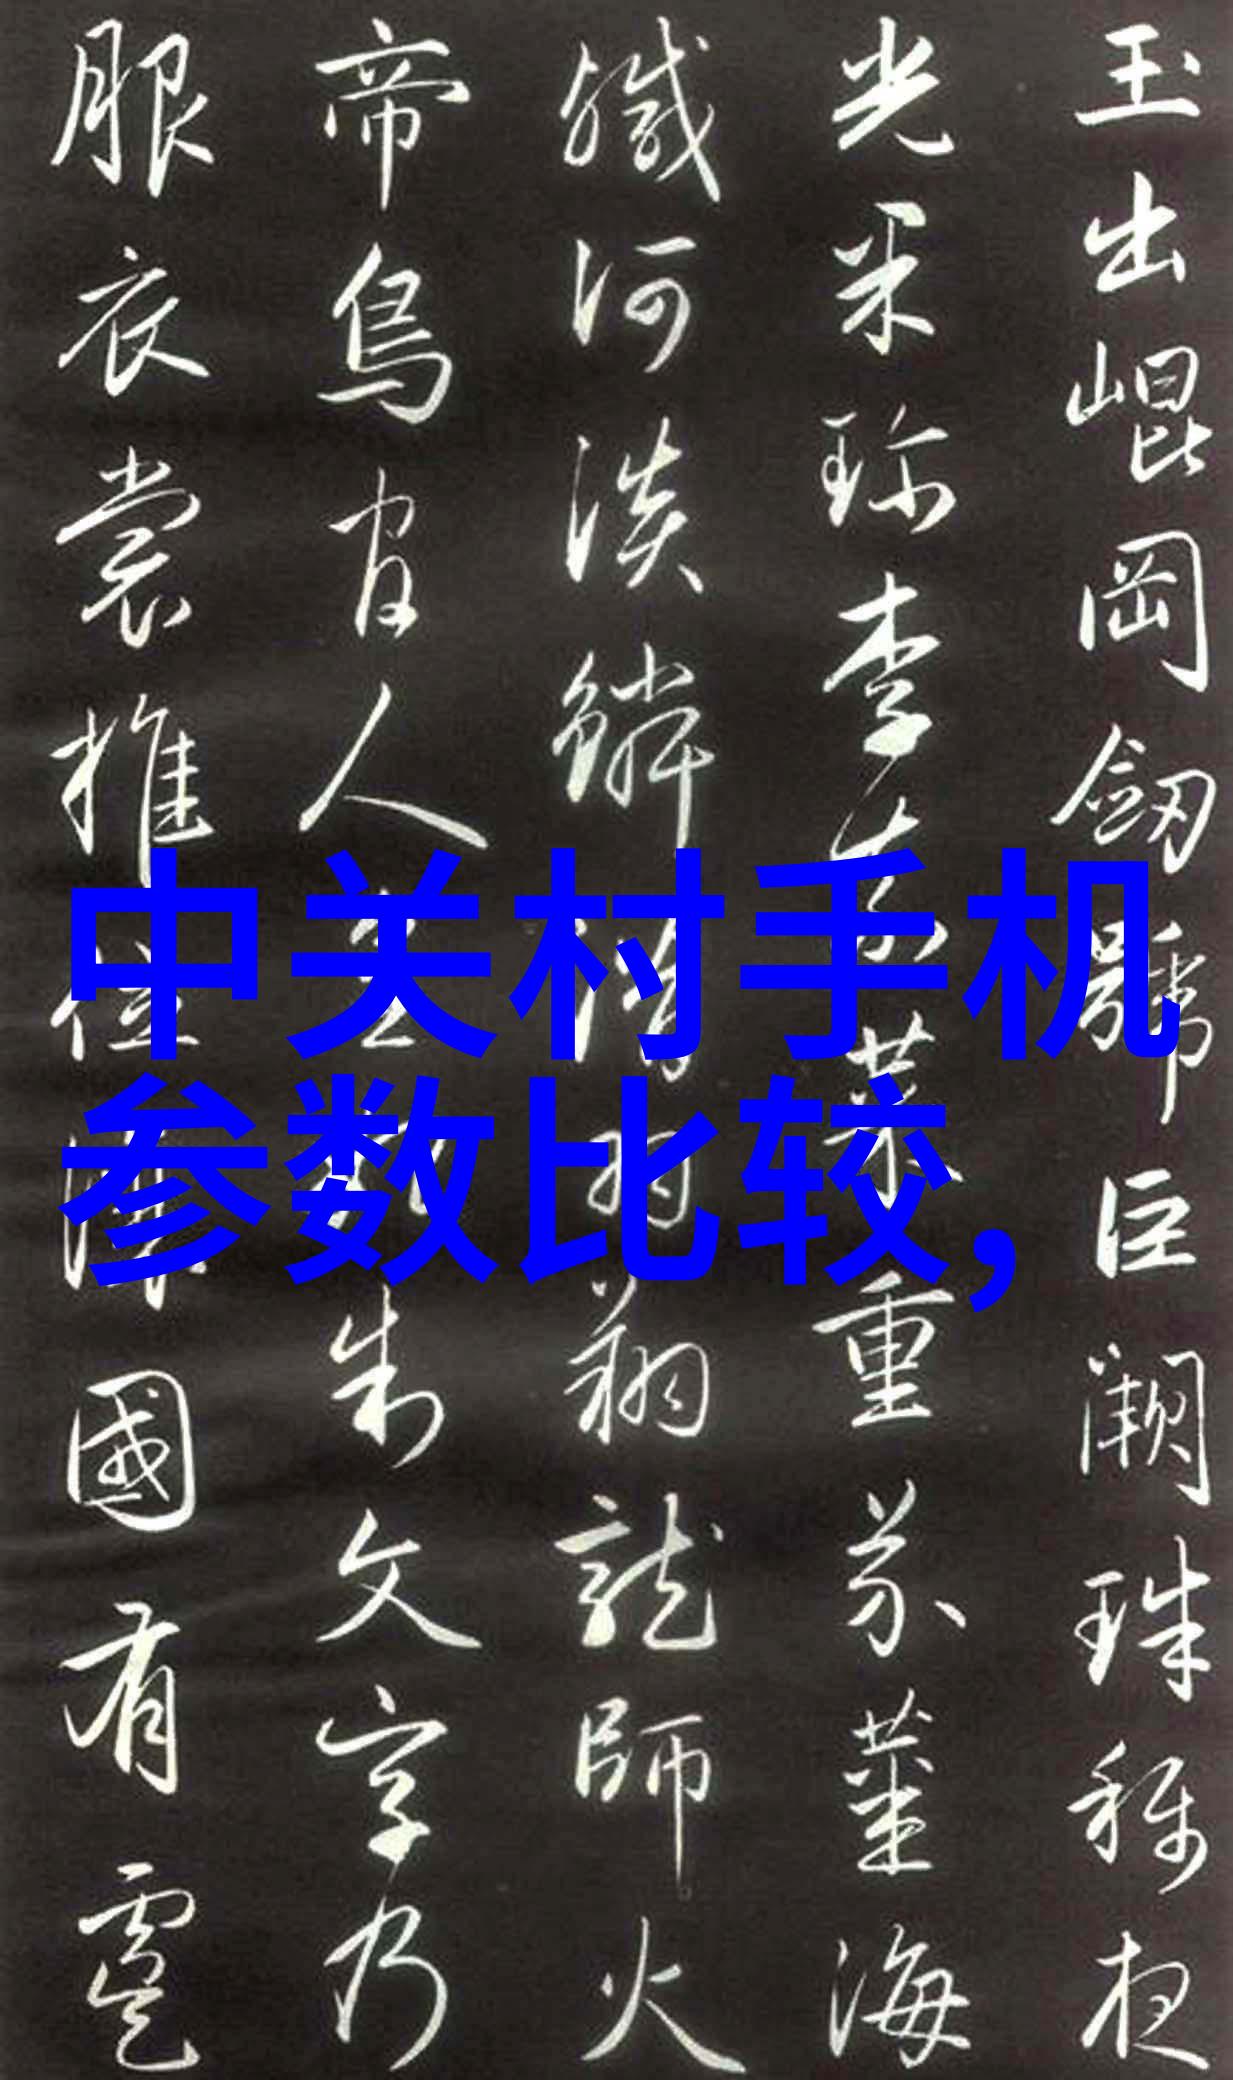 玉出崐岡劒號巨闕珠稱夜
光果珍李柰菜重芥薑海
鹹河淡鱗潛羽翔龍師火
帝鳥官人皇始制文字乃
服衣裳推位讓國有虞
中关村手机
参数比较,